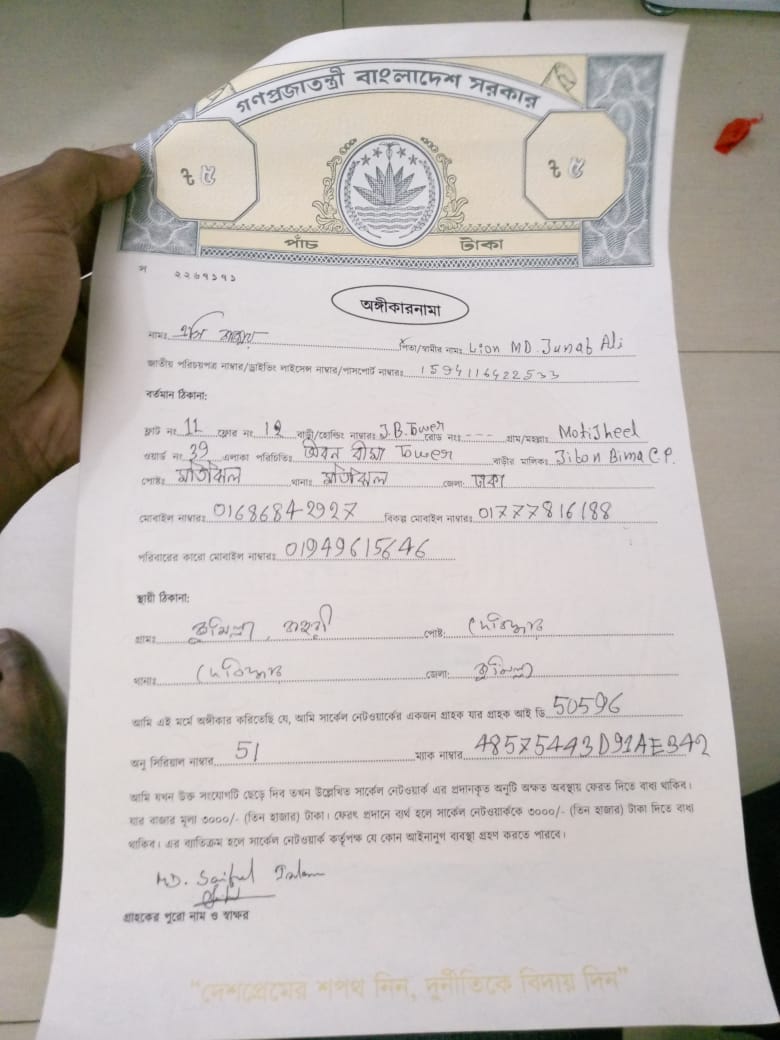 গণপ্রজাতন্ত্রী বাংলাদেশ সরকার
৳ ৫ ৳ ৫
পাঁচ টাকা
স ২২৬৭১৭১
অঙ্গীকারনামা
নামঃ পিতা/স্বামীর নামঃ Lion MD. Junab Ali
জাতীয় পরিচয়পত্র নাম্বার/ড্রাইভিং লাইসেন্স নাম্বার/পাসপোর্ট নাম্বারঃ 1594116422533
বর্তমান ঠিকানা:
ফ্লাট নং 11 ফ্লোর নং 12 বাড়ী/হোল্ডিং নাম্বারঃ J.B.Tower রোড নংঃ --- গ্রাম/মহল্লাঃ Motijheel
ওয়ার্ড নং 39 এলাকা পরিচিতিঃ জীবন বীমা Tower বাড়ীর মালিকঃ Jibon Bima C.P.
পোষ্টঃ মতিঝিল থানাঃ মতিঝিল জেলা: ঢাকা
মোবাইল নাম্বারঃ 01686842927 বিকল্প মোবাইল নাম্বারঃ 01777816188
পরিবারের কারো মোবাইল নাম্বারঃ 01949615646
স্থায়ী ঠিকানা:
গ্রামঃ কুমিল্লা, পোষ্ট: দেবিদ্বার
থানাঃ দেবিদ্বার জেলা: কুমিল্লা
আমি এই মর্মে অঙ্গীকার করিতেছি যে, আমি সার্কেল নেটওয়ার্কের একজন গ্রাহক যার গ্রাহক আই ডি 50596
অনু সিরিয়াল নাম্বার 51 ম্যাক নাম্বার 48575443D91AE342
আমি যখন উক্ত সংযোগটি ছেড়ে দিব তখন উল্লেখিত সার্কেল নেটওয়ার্ক এর প্রদানকৃত অনুটি অক্ষত অবস্থায় ফেরত দিতে বাধ্য থাকিব।
যার বাজার মূল্য ৩০০০/- (তিন হাজার) টাকা। ফেরৎ প্রদানে ব্যর্থ হলে সার্কেল নেটওয়ার্ককে ৩০০০/- (তিন হাজার) টাকা দিতে বাধ্য
থাকিব। এর ব্যতিক্রম হলে সার্কেল নেটওয়ার্ক কর্তৃপক্ষ যে কোন আইনানুগ ব্যবস্থা গ্রহণ করতে পারবে।
MD. Saiful Islam
গ্রাহকের পুরো নাম ও স্বাক্ষর
"দেশপ্রেমের শপথ নিন, দুর্নীতিকে বিদায় দিন"